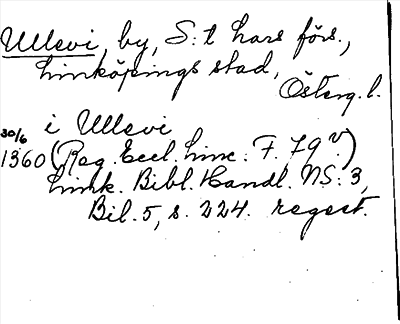 Ullevi, by, S:t Lars förs.,
Linköpings stad,
Österg.l.
30/6 i Ullevi
1360 (Reg. Eccl. Linc. F. 79 v.)
Link. Bibl. Handl. NS: 3,
Bil. 5, s. 224. regest.